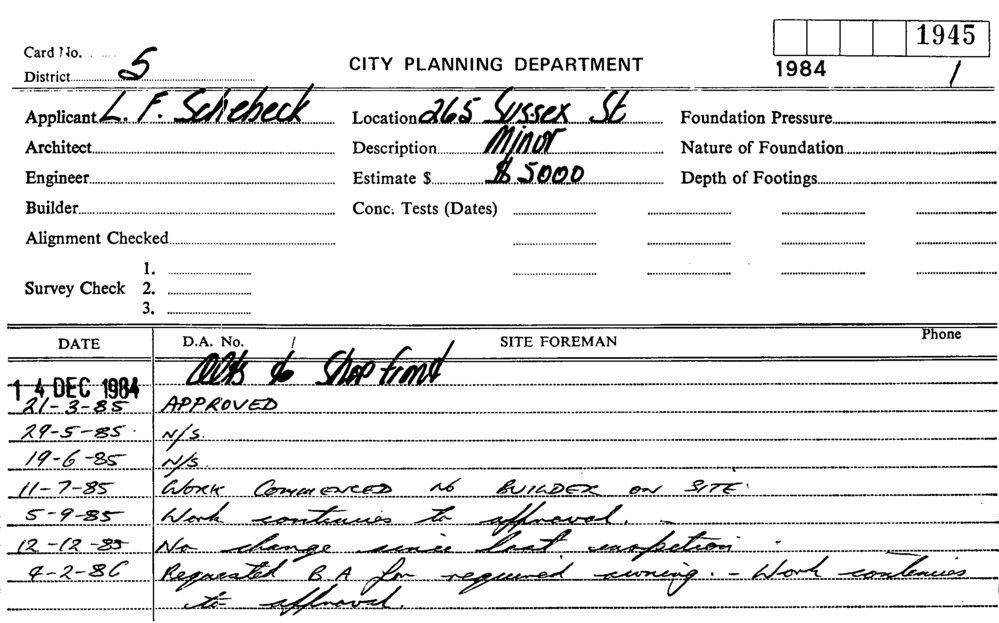 1945
Card No.
CITY PLANNING DEPARTMENT
1984 /
District 5
Applicant L. F. Schebeck Location 265 Sussex St Foundation Pressure
Architect Description Minor Nature of Foundation
Engineer Estimate $ $ 5000 Depth of Footings
Builder Conc. Tests (Dates)
Alignment Checked
1.
Survey Check 2.
3.
DATE D.A. No. / SITE FOREMAN Phone
14 DEC 1984 Alts to Shop front
21-3-85 APPROVED
29-5-85 N/S.
19-6-85 N/S.
11-7-85 WORK COMMENCED NO BUILDER ON SITE.
5-9-85 Work continues to approval. -
12-12-85 No change since last inspection.
4-2-86 Requested B A for required awning. - Work continues
to approval.